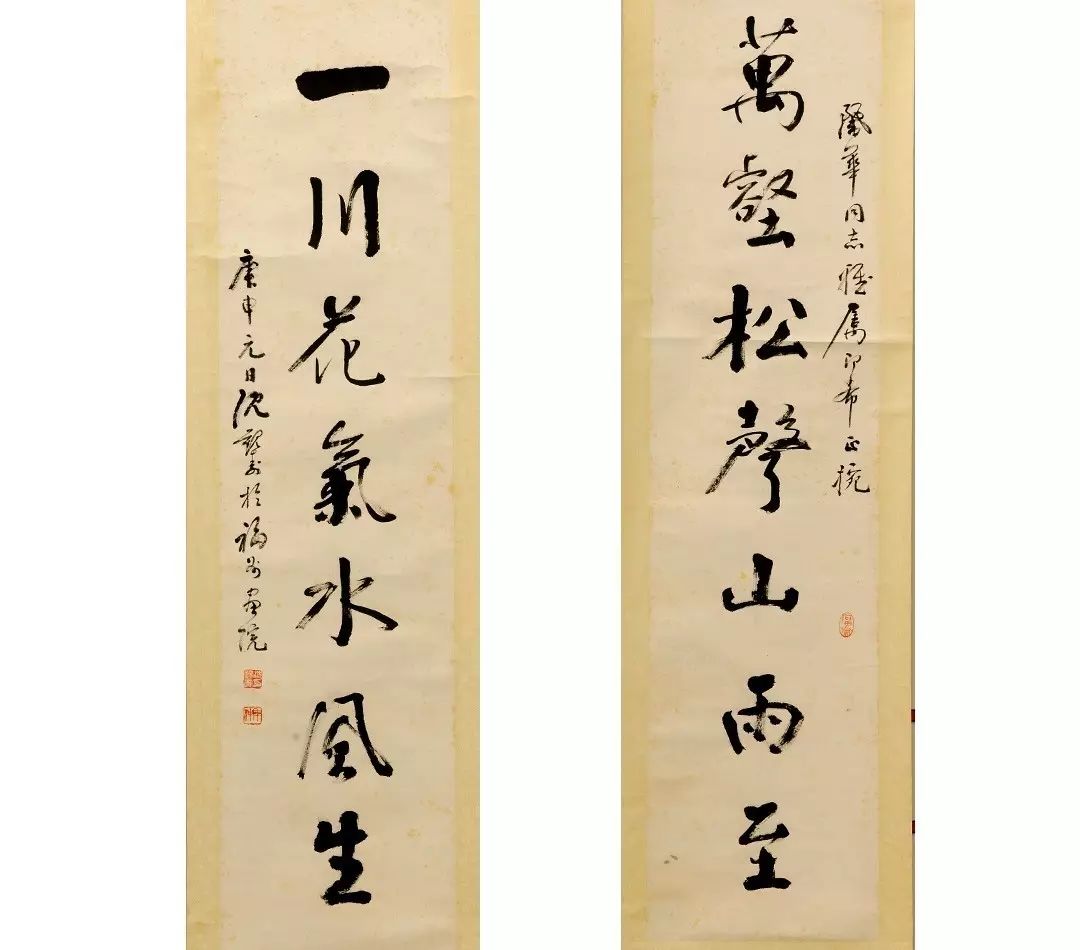 鳳華同志雅属即希正捥
萬壑松聲山雨至
一川花氣水風生
庚申元日沈覲壽於福州畫院